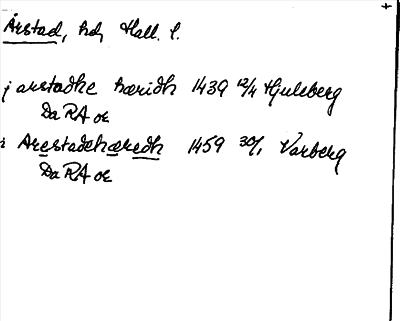 Årstad, hd, Hall. l.
j arstadhe hæridh 1439 12/4 Hjuleberg
Da RA or
i Arestadehæredh 1459 30/1 Varberg
Da RA or